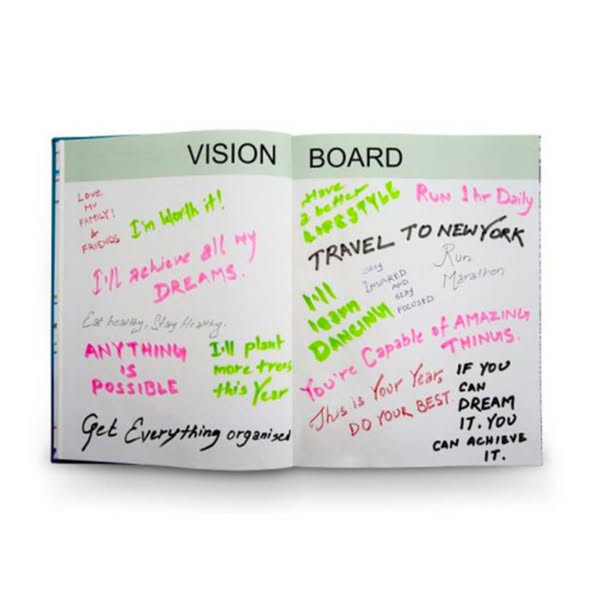 VISION BOARD
LOVE
MY
FAMILY!
&
FRIENDS
I'm Worth it!
I'll achieve all my
DREAMS.
Eat healthy, Stay Healthy.
ANYTHING
IS
POSSIBLE
I'll plant
more trees
this Year
Get Everything organised
Have
a better
LIFESTYLE
Run 1 hr Daily
TRAVEL TO NEW YORK
Stay
INSPIRED
AND
Stay
FOCUSED
Run
Marathon
I'll
learn
DANCING
You're Capable of AMAZING
THINGS.
This is Your Year,
DO YOUR BEST.
IF YOU
CAN
DREAM
IT. YOU
CAN ACHIEVE
IT.